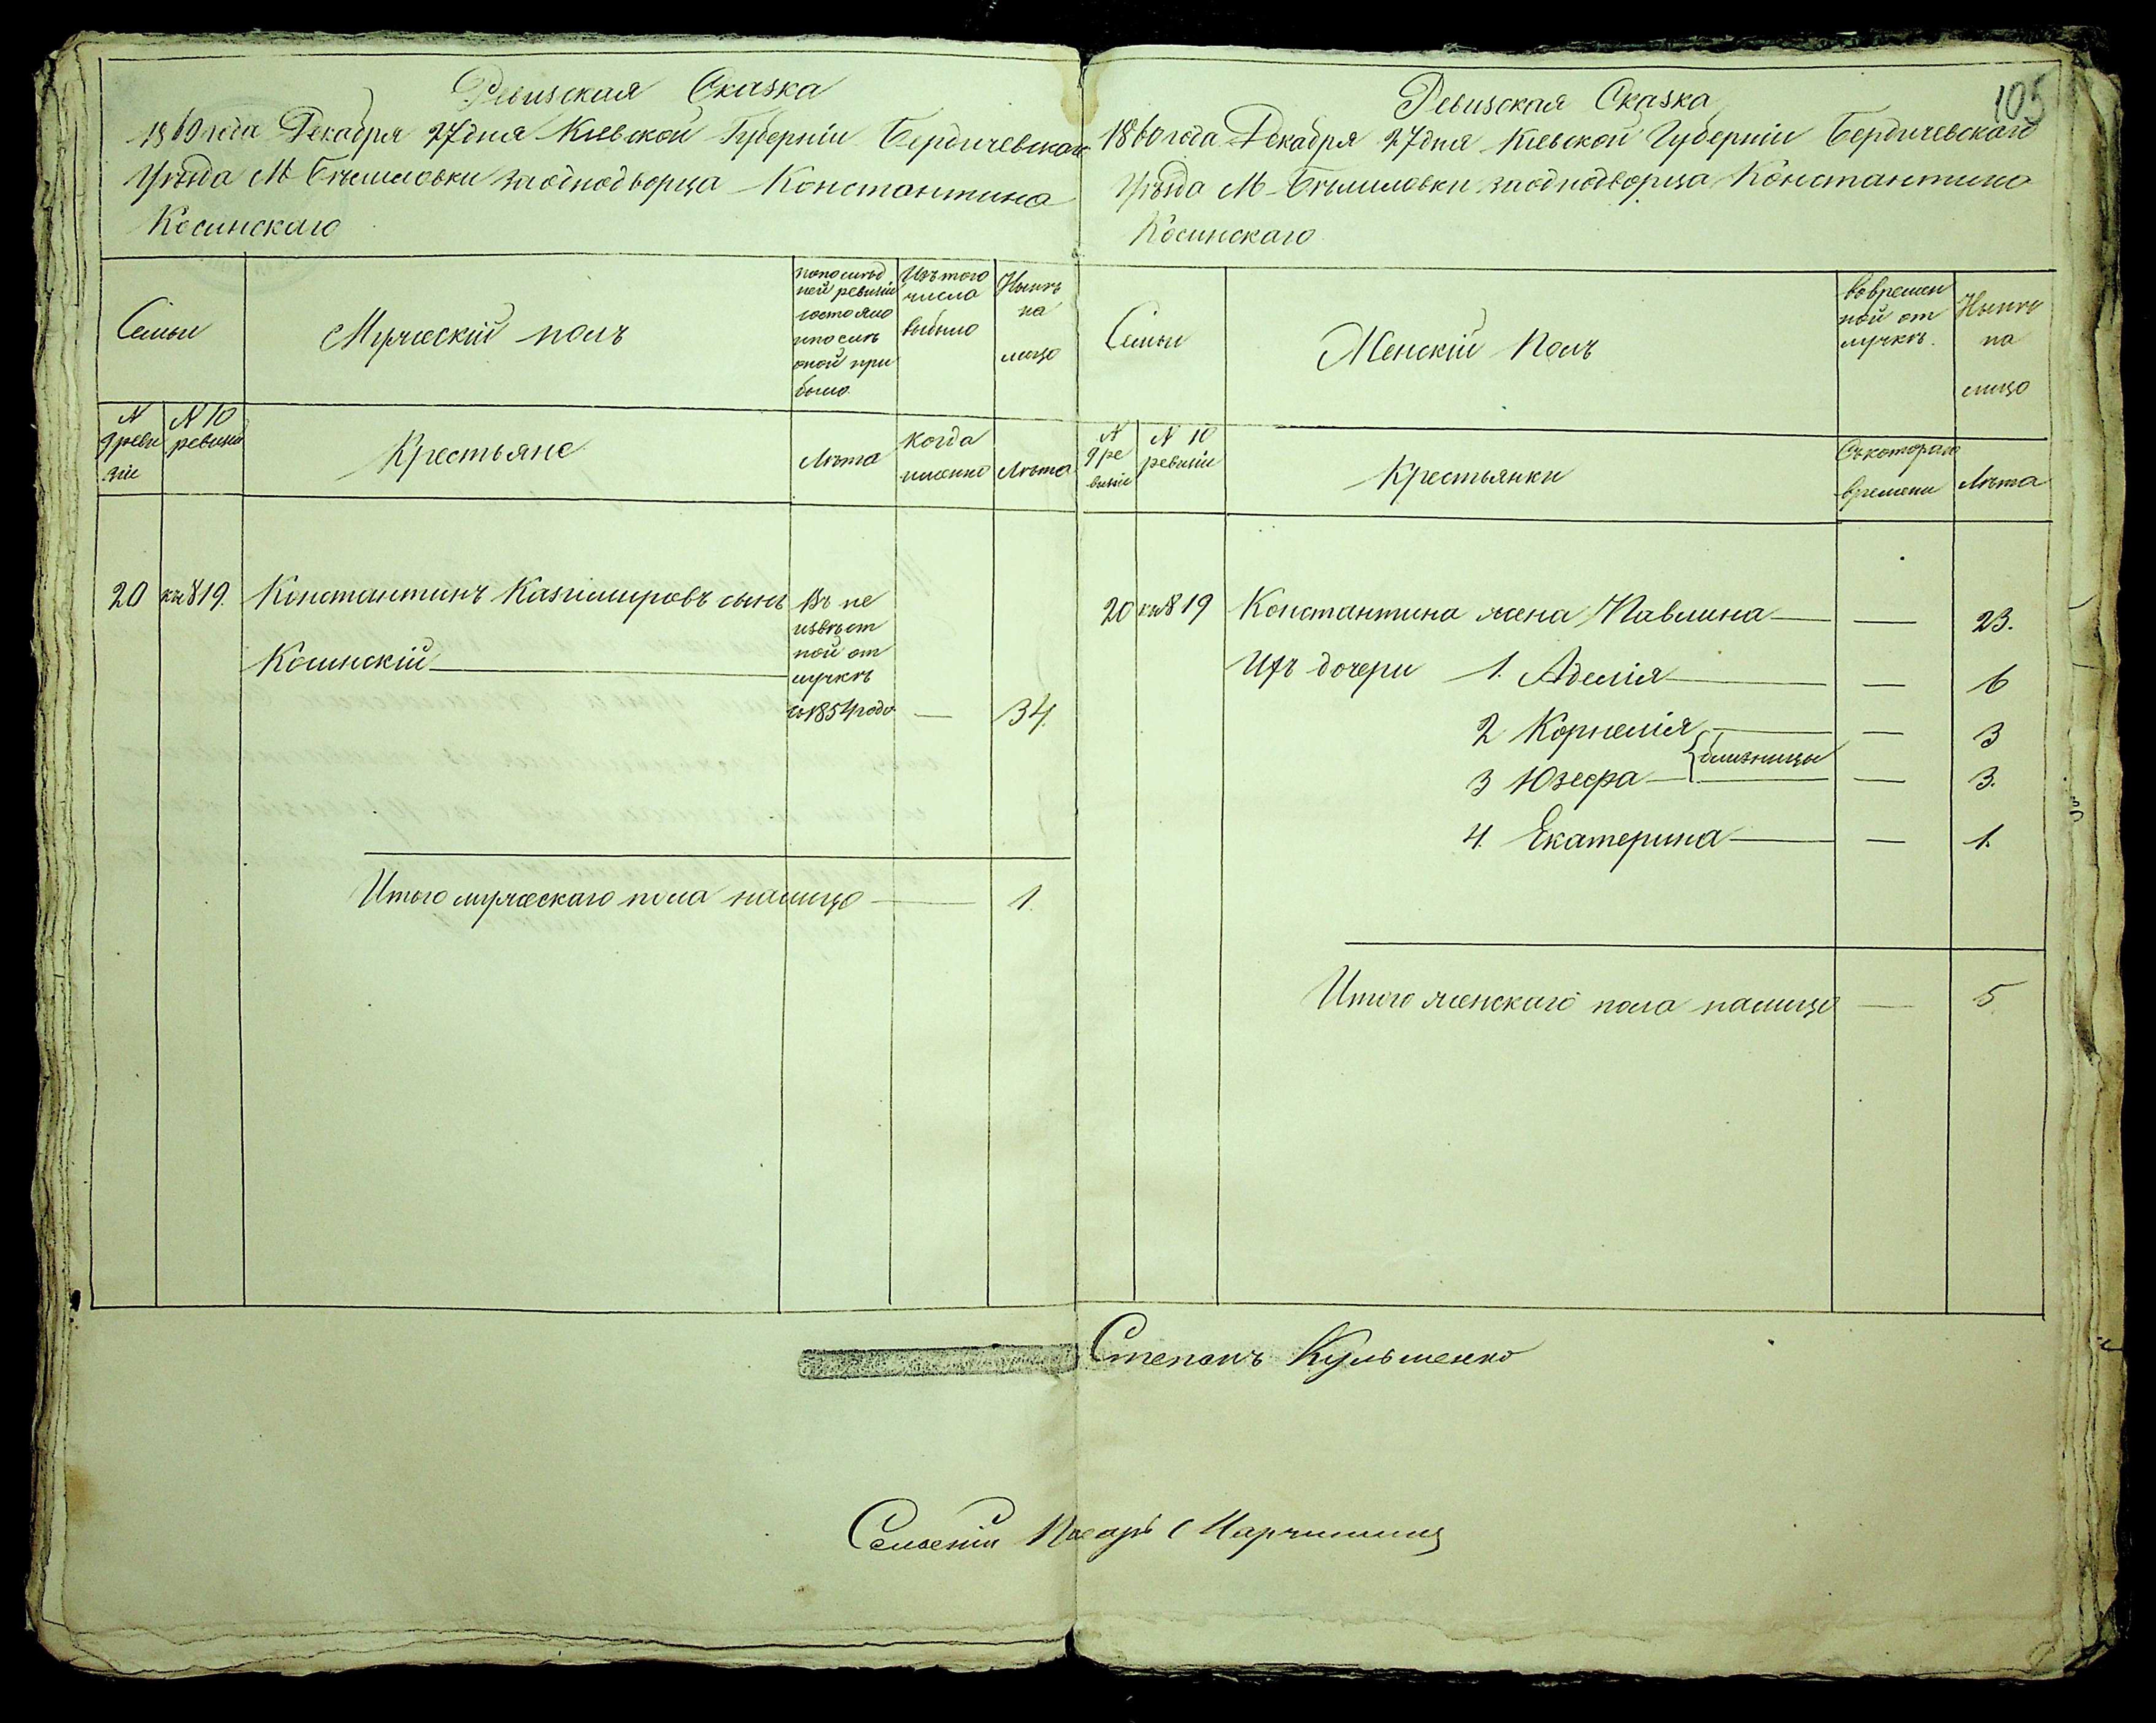 Ревизская Сказка
1860 года Декабря 27 дня Киевской Губерніи Бердичевскаго
Уѣзда М Бѣлиловки за однодворца Константина
Косинскаго
Семьи
Мужескій полъ
по послѣд
ней ревизіи
состояло
и послѣ
оной при
было
Изъ того
числа
выбыло
Нынѣ
на
лицо
N
9 реви
зіи
N 10
ревизіи
Крестьяне
Лѣта
когда
именно
Лѣта
20
къ 819.
Константинъ Казимировъ сынъ
Косинскій
Въ не
извѣст
ной от
лучкѣ
съ 1854 года
—
34.
Итого мужескаго пола налицо — 1.
105
Ревизская Сказка
1860 года Декабря 27 дня Киевской Губерніи Бердичевскаго
Уѣзда М Бѣлиловки за однодворца Константина
Косинскаго
Семьи
Женскій Полъ
во времен
ной от
лучкѣ.
Нынѣ
на
лицо
N
9 ре
визіи
N 10
ревизіи
Крестьянки
Съ котораго
времени
Лѣта
20 къ 819 Константина жена Павлина — — 23.
Ихъ дочери 1. Аделія — — 6
2 Корнелія — — 3
близницы
3 Юзефа — — 3.
4. Екатерина — — 1.
Итого женскаго пола налицо — 5
Степанъ Кульшенко
Сельскій Писарь